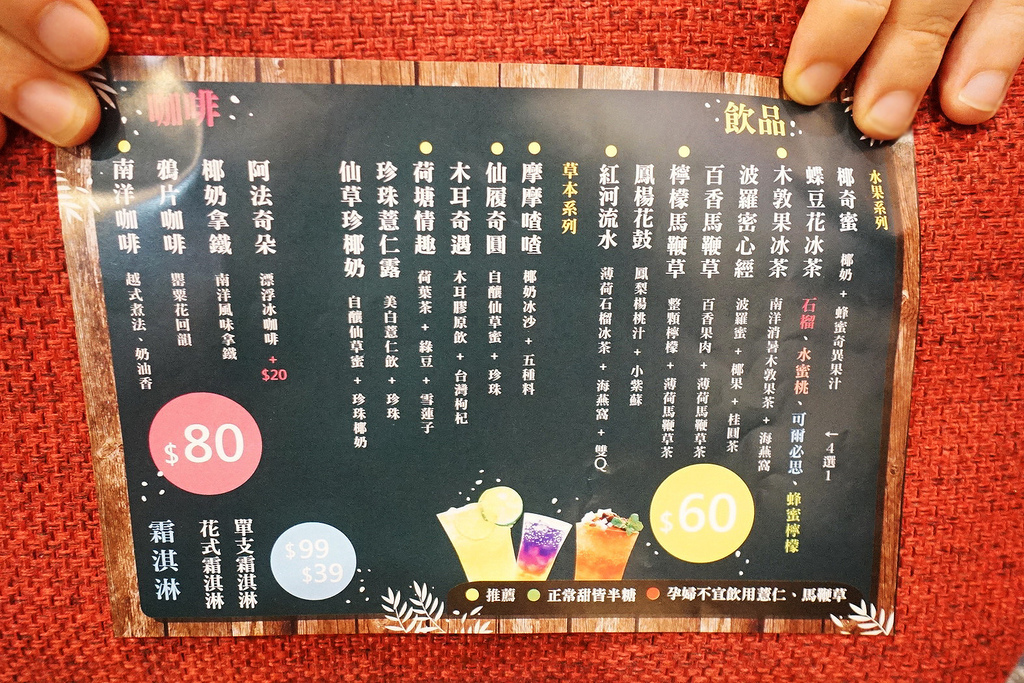 飲品
水果系列
椰奇蜜 椰奶 + 蜂蜜奇異果汁
蝶豆花冰茶 石榴、水蜜桃、可爾必思、蜂蜜檸檬
←4選1
木敦果冰茶 南洋消暑木敦果茶 + 海燕窩
波羅密心經 波羅蜜 + 椰果 + 桂圓茶
百香馬鞭草 百香果肉 + 薄荷馬鞭草茶
檸檬馬鞭草 整顆檸檬 + 薄荷馬鞭草茶
鳳楊花鼓 鳳梨楊桃汁 + 小紫蘇
紅河流水 薄荷石榴冰茶 + 海燕窩 + 雙Q
草本系列
摩摩喳喳 椰奶冰沙 + 五種料
仙履奇圓 自釀仙草蜜 + 珍珠
木耳奇遇 木耳膠原飲 + 台灣枸杞
荷塘情趣 荷葉茶 + 綠豆 + 雪蓮子
珍珠薏仁露 美白薏仁飲 + 珍珠
仙草珍椰奶 自釀仙草蜜 + 珍珠椰奶
$60
咖啡
阿法奇朵 漂浮冰咖啡 + $20
椰奶拿鐵 南洋風味拿鐵
鴉片咖啡 罌粟花回韻
南洋咖啡 越式煮法、奶油香
$80
單支霜淇淋
花式霜淇淋
霜淇淋
$99
$39
推薦 正常甜皆半糖 孕婦不宜飲用薏仁、馬鞭草